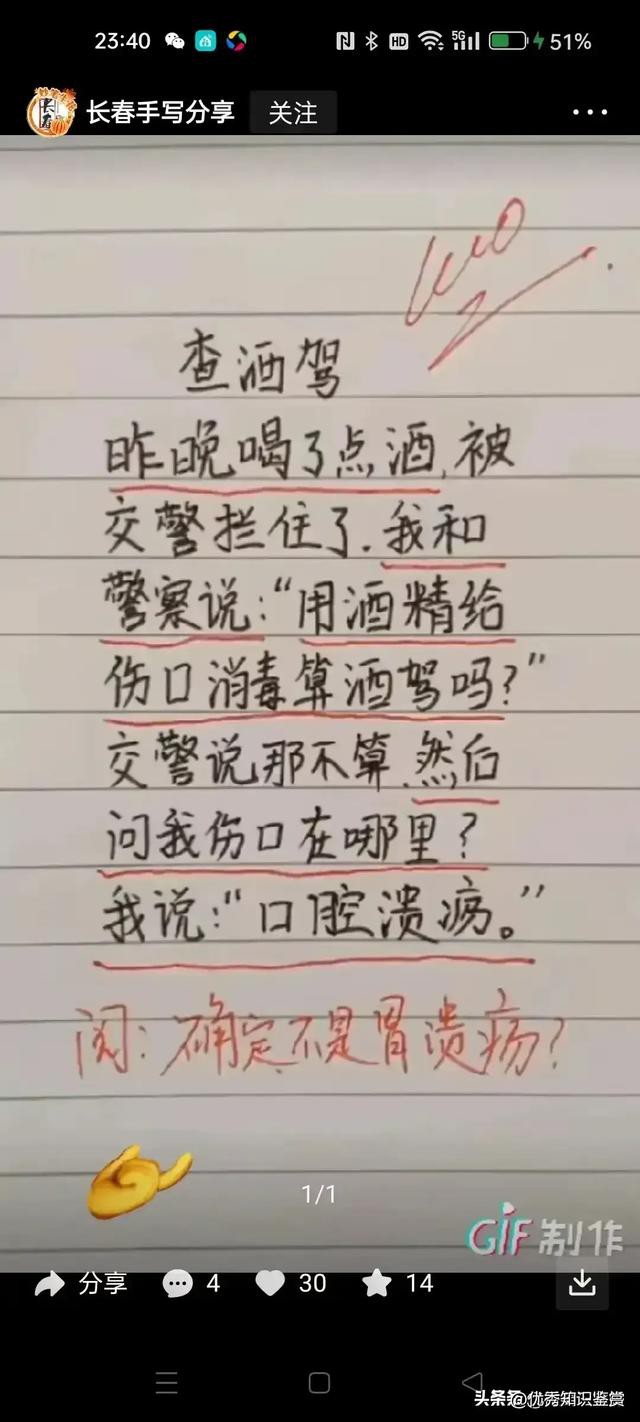 23:40
HD
5G
51%
长春手写分享
关注
查酒驾
昨晚喝了点酒,被
交警拦住了.我和
警察说:“用酒精给
伤口消毒算酒驾吗?”
交警说那不算.然后
问我伤口在哪里?
我说:“口腔溃疡。”
阅:确定不是胃溃疡?
1/1
GIF制作
分享
4
30
14
头条 @优秀知识鉴赏